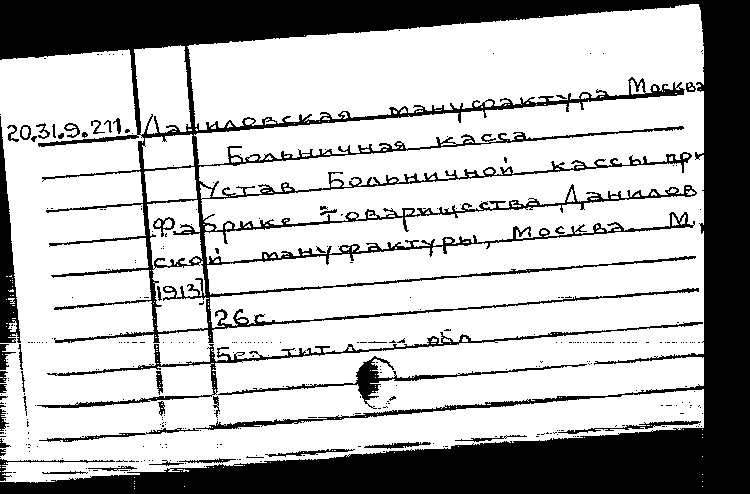 20.31.9.211. Даниловская мануфактура Москва
Больничная касса
Устав Больничной кассы при
Фабрике Товарищества Данилов-
ской мануфактуры, Москва. М.,
[1913]
26с.
Без тит. л. и обл